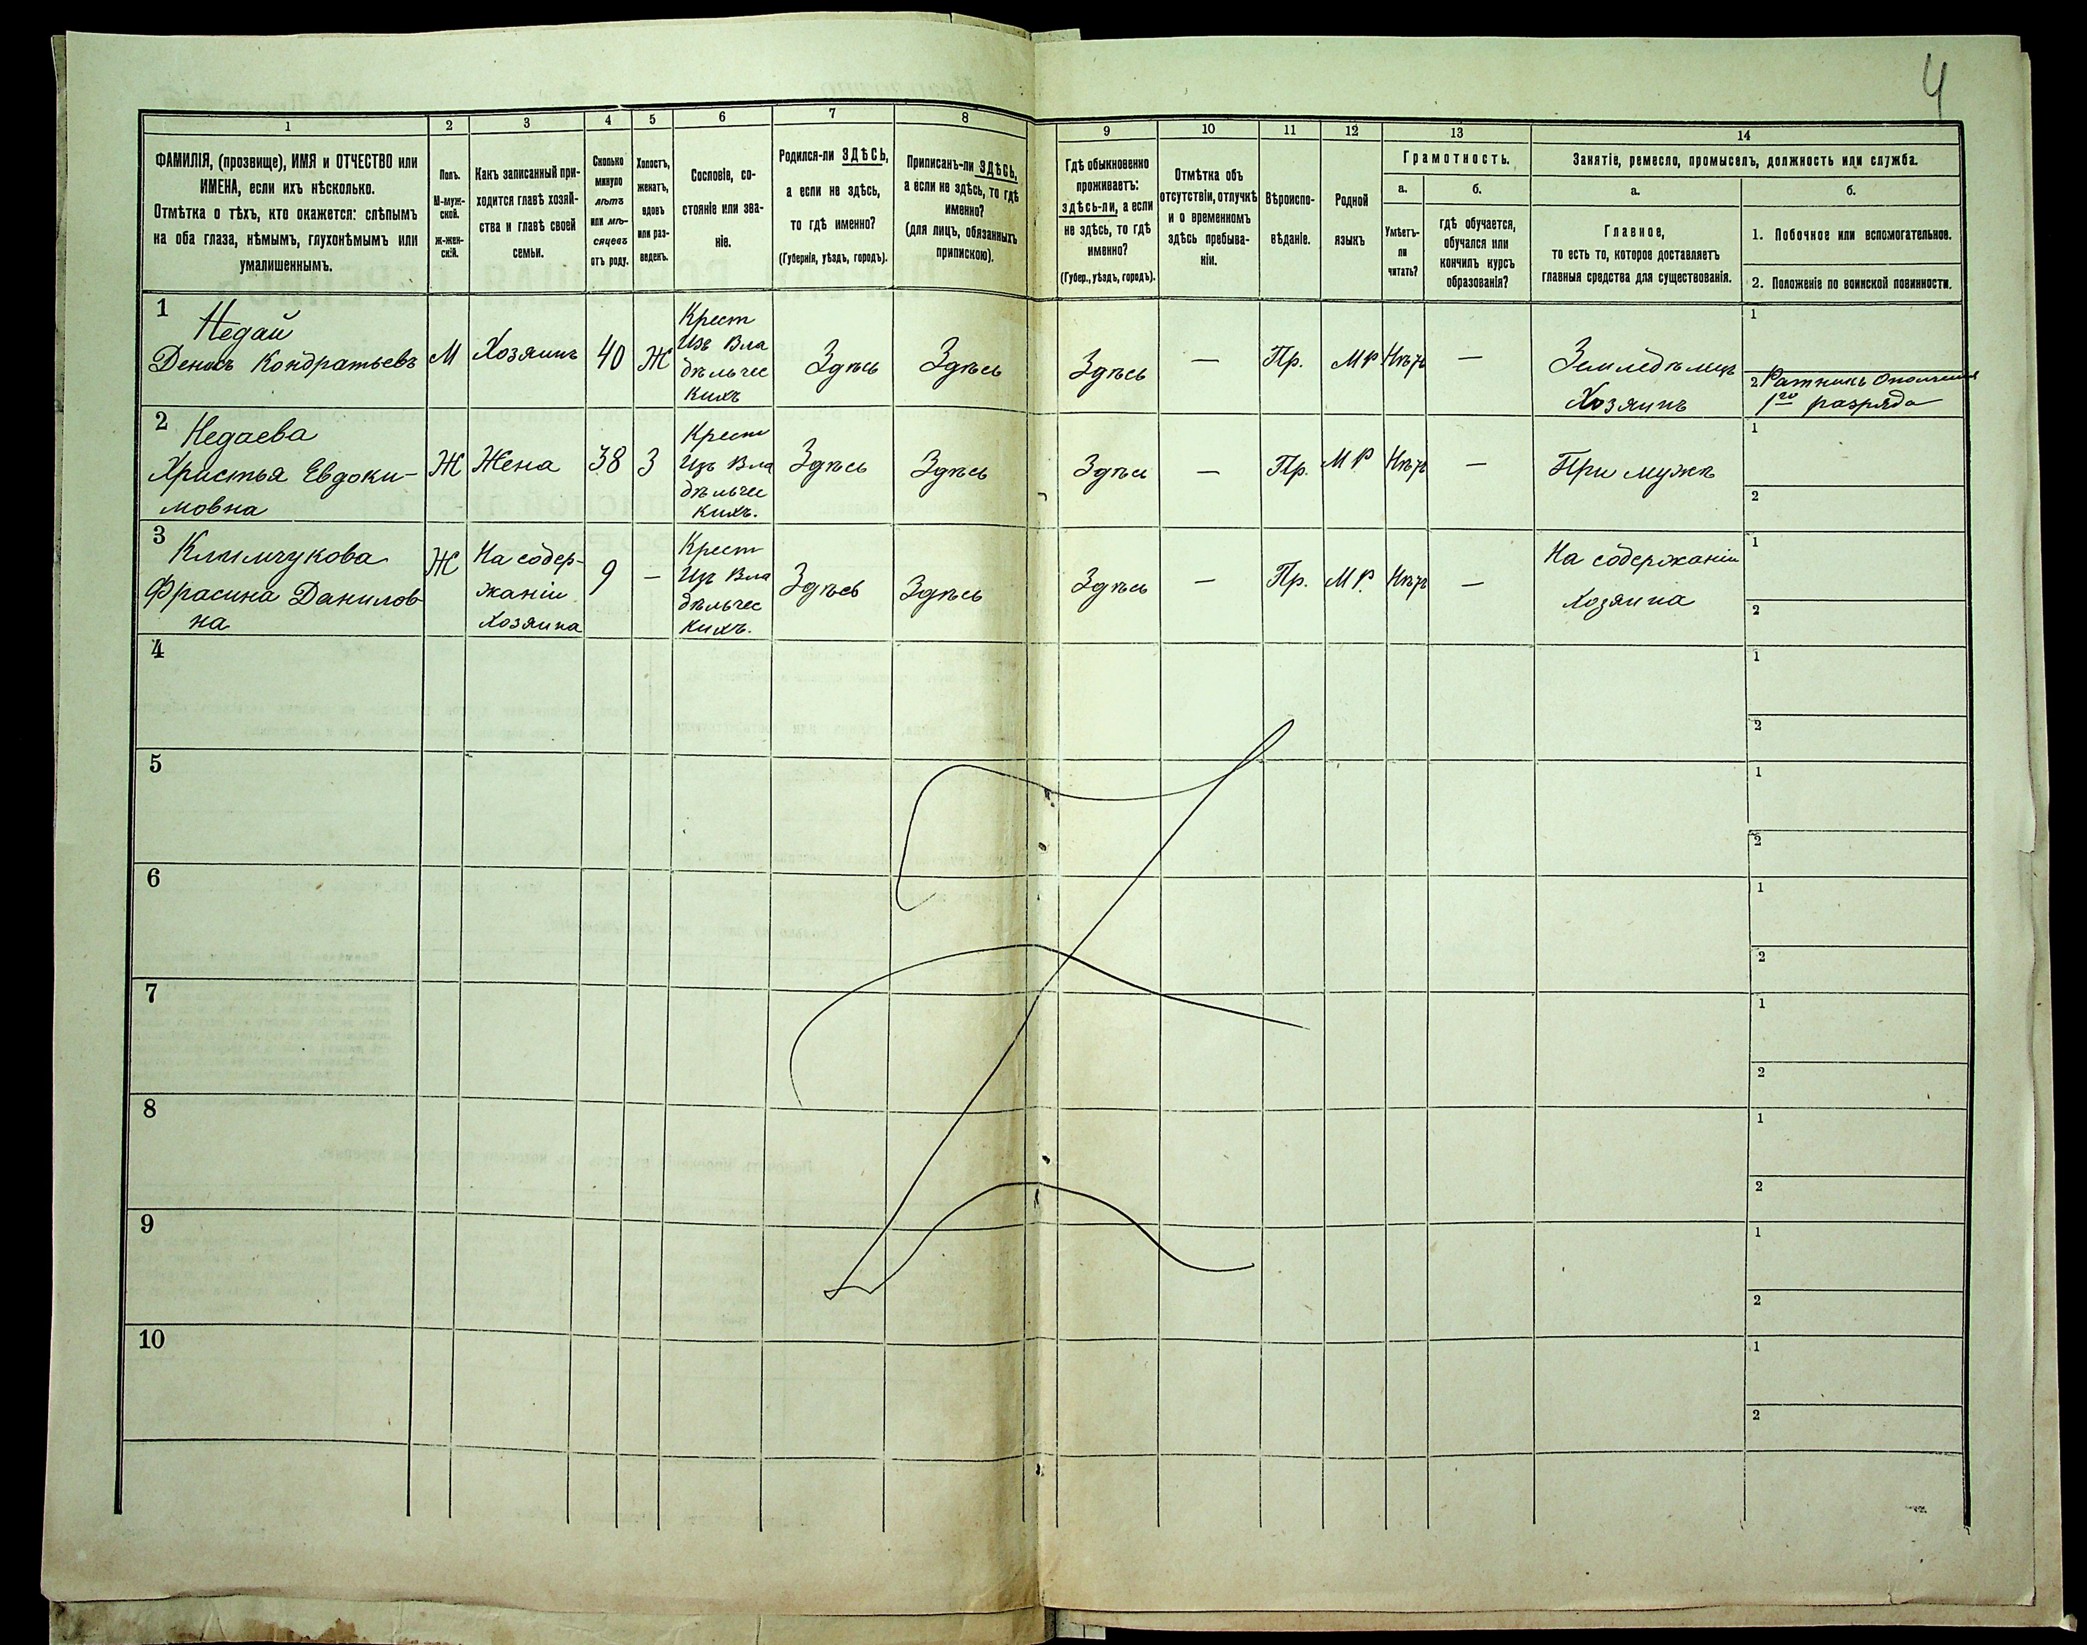 4
1 2 3 4 5 6 7 8 9 10 11 12 13 14
ФАМИЛІЯ, (прозвище), ИМЯ и ОТЧЕСТВО или
ИМЕНА, если ихъ нѣсколько.
Отмѣтка о тѣхъ, кто окажется: слѣпымъ
на оба глаза, нѣмымъ, глухонѣмымъ или
умалишеннымъ.
Полъ.
М-муж-
ской.
ж-жен-
скій.
Какъ записанный при-
ходится главѣ хозяй-
ства и главѣ своей
семьи.
Сколько
минуло
лѣтъ
или мѣ-
сяцевъ
отъ роду.
Холостъ,
женатъ,
вдовъ
или раз-
веденъ.
Сословіе, со-
стояніе или зва-
ніе.
Родился-ли ЗДѢСЬ,
а если не здѣсь,
то гдѣ именно?
(Губернія, уѣздъ, городъ).
Приписанъ-ли ЗДѢСЬ,
а если не здѣсь, то гдѣ
именно?
(для лицъ, обязанныхъ
припискою).
Гдѣ обыкновенно
проживаетъ:
здѣсь-ли, а если
не здѣсь, то гдѣ
именно?
(Губер., уѣздъ, городъ).
Отмѣтка объ
отсутствіи, отлучкѣ
и о временномъ
здѣсь пребыва-
ніи.
Вѣроиспо-
вѣданіе.
Родной
языкъ
Грамотность.
а.
Умѣетъ-
ли
читать?
б.
гдѣ обучается,
обучался или
кончилъ курсъ
образованія?
Занятіе, ремесло, промыселъ, должность или служба.
а.
Главное,
то есть то, которое доставляетъ
главныя средства для существованія.
б.
1. Побочное или вспомогательное.
2. Положеніе по воинской повинности.
1
Недай
Денисъ Кондратьевъ
М
Хозяинъ
40
Ж
Крест
Изъ Вла
дѣльчес
кихъ
Здѣсь
Здѣсь
Здѣсь
—
Пр.
МР
Нѣтъ
—
Земледѣлецъ
Хозяинъ
1
2 Ратникъ Ополченія
1го разряда
2
Недаева
Христья Евдоки-
мовна
Ж
Жена
38
З
Крест
Изъ Вла
дѣльчес
кихъ.
Здѣсь
Здѣсь
Здѣсь
—
Пр.
МР
Нѣтъ
—
При мужѣ
1
2
3
Климчукова
Фрасина Данилов
на
Ж
На содер-
жаніи
Хозяина
9
—
Крест
Изъ Вла
дѣльчес
кихъ.
Здѣсь
Здѣсь
Здѣсь
—
Пр.
МР.
Нѣтъ
—
На содержаніи
Хозяина
1
2
4
1
2
5
1
2
6
1
2
7
1
2
8
1
2
9
1
2
10
1
2